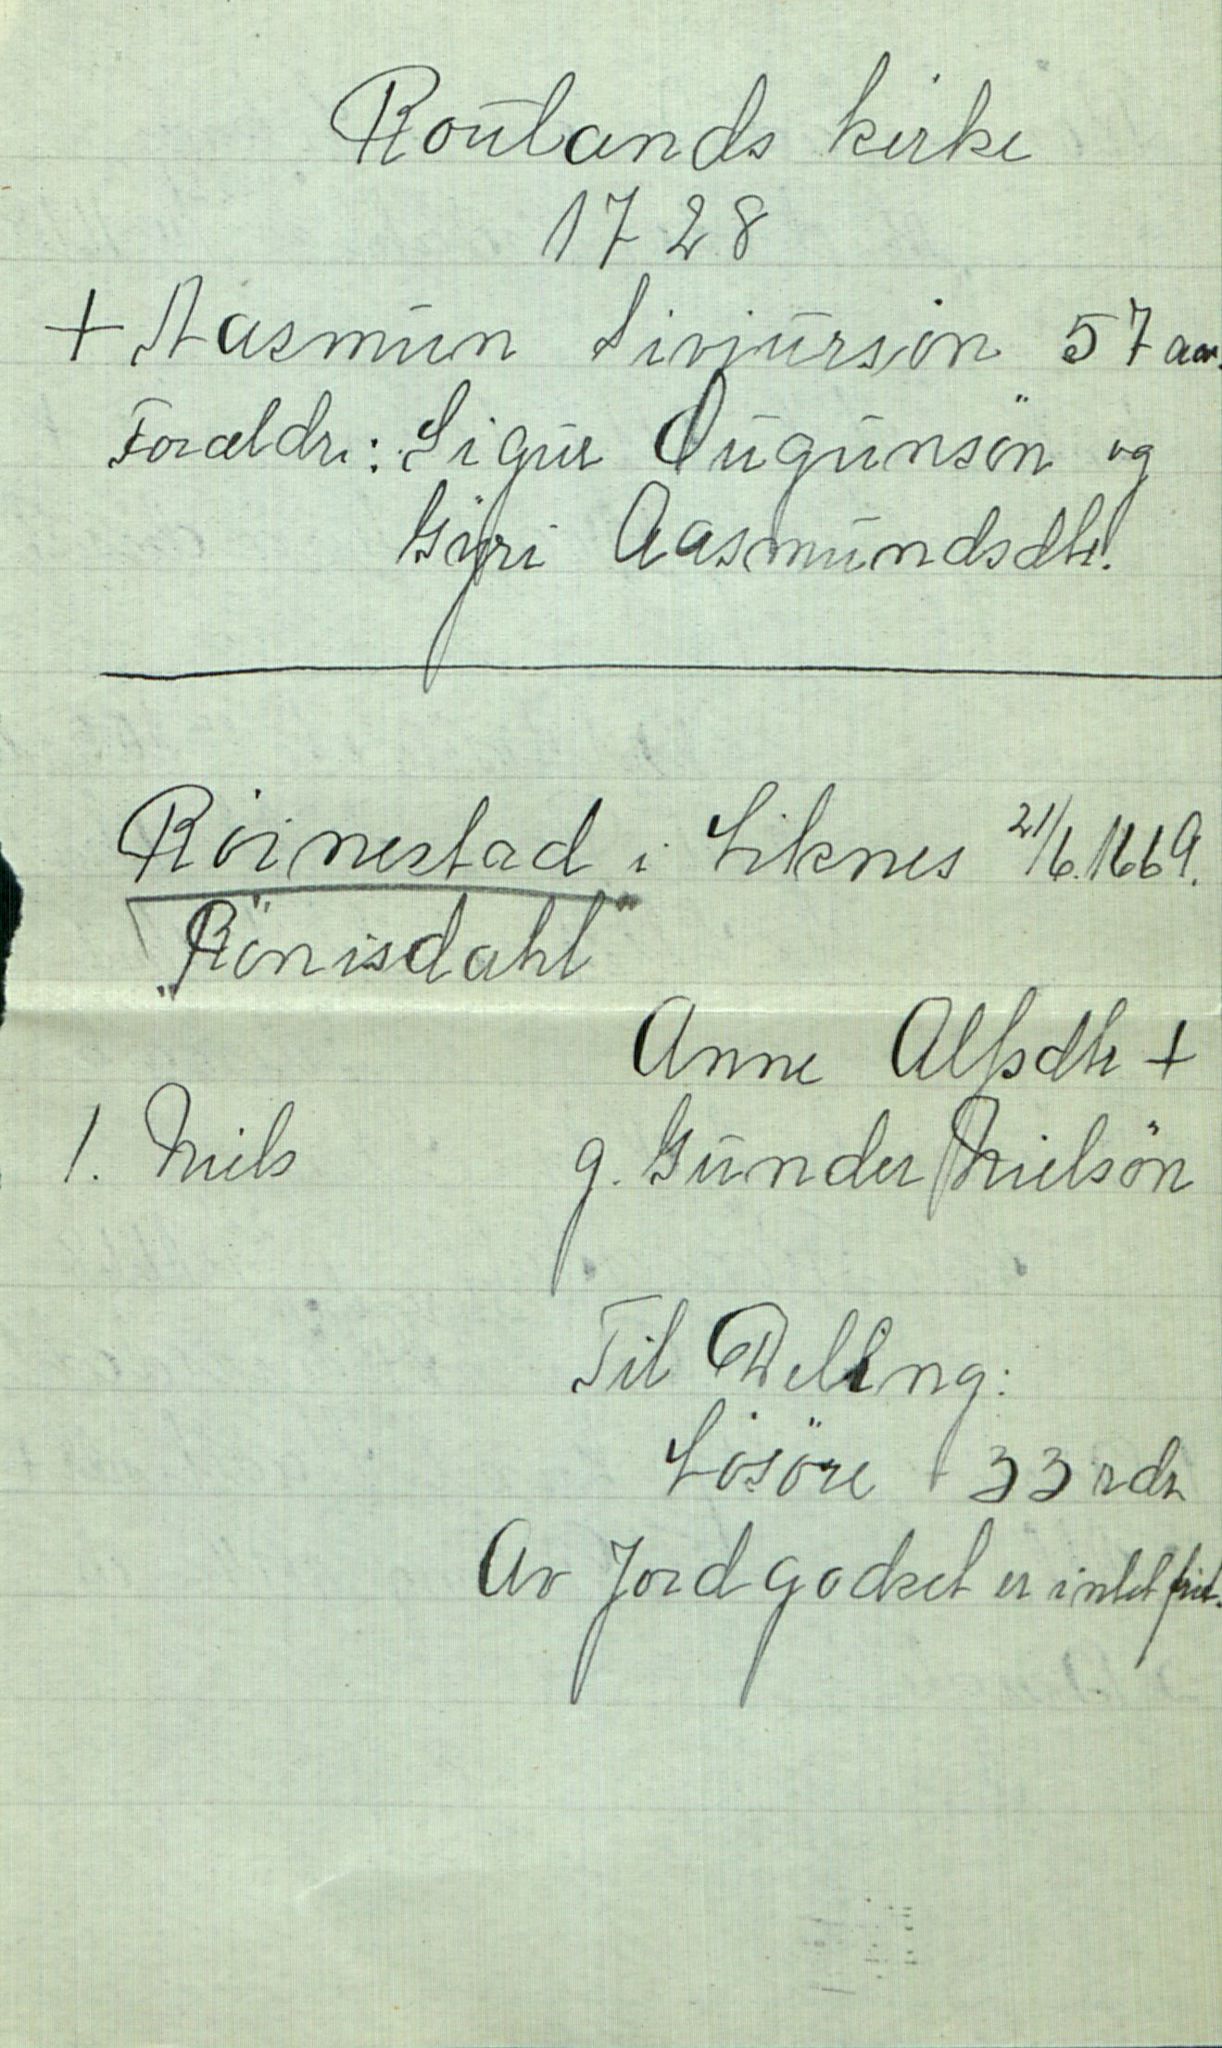 Roulands kirke
1728
+ Aasmun Sivjursön 57 aar.
Forældre: Sigur Ougunsön og
Gyri Aasmundsdtr.
Röinestad i Liknes 21/6.1669.
"Rönisdahl"
Anne Alfsdtr +
1. Niels g. Gunder Nielsön
Til Deling:
Lösöre 33 rdr
Av Jordgodset er intet frit.